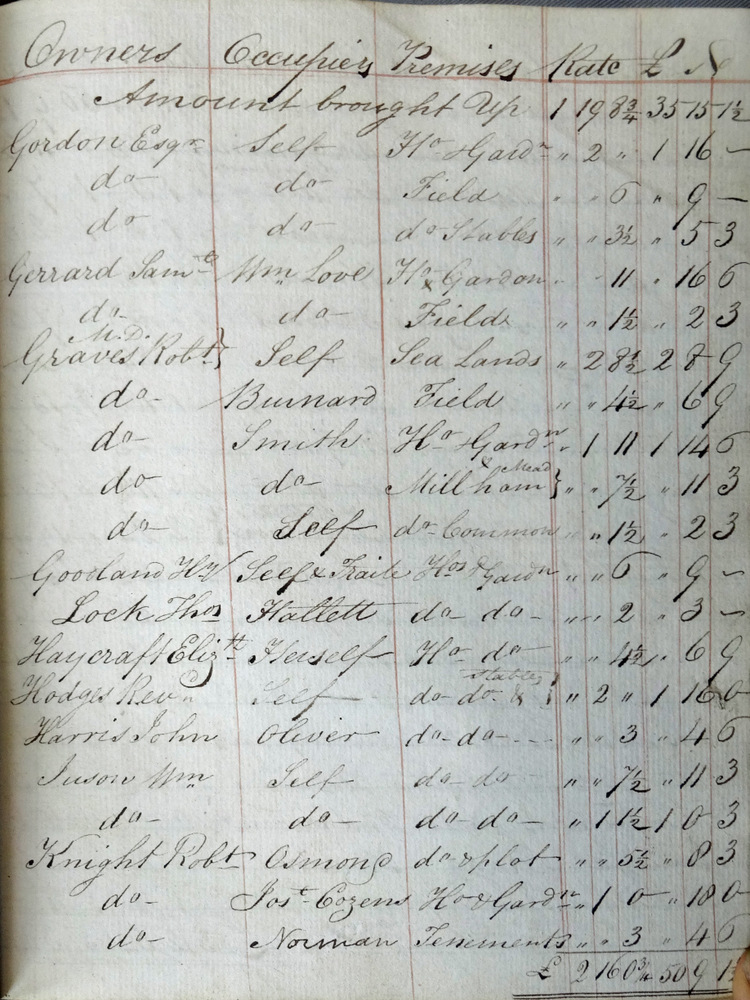 Owners Occupiers Premises Rate £
Amount brought Up 1 19 8¾ 35 15 1½
Gordon Esqr Self Ho & Gardn " 2 " 1 16 –
do do Field " " 6 " 9 –
do do do Stables " " 3½ " 5 3
Gerrard Saml Wm Love Ho & Gardon " " 11 " 16 6
do do Fields " " 1½ " 2 3
M.D.
Graves Robt } Self Sea Lands " 2 8½ 2 8 9
do Burnard Field " " 4½ " 6 9
do Smith Ho & Gardn " 1 11 1 14 6
do do Millham Mead } " " 7½ " 11 3
do Self do Common " " 1½ " 2 3
Goodland Hy Self & Traite Hos & Gardn " " 6 " 9 –
Lock Thos Hallett do do " " 2 " 3 –
Haycraft Elizth Herself Ho do " " 4½ " 6 9
Hodges Revd Self do do & Stables } " 2 " 1 16 0
Harris John Oliver do do " " 3 " 4 6
Juson Wm Self do do " " 7½ " 11 3
do do do do " 1 1½ 1 0 3
Knight Robt Osmond do & plot " " 5½ " 8 3
do Jost Cozens Ho & Gardn " 1 0 " 18 0
do Norman Tenements " " 3 " 4 6
£ 2 16 0¾ 50 9 1½